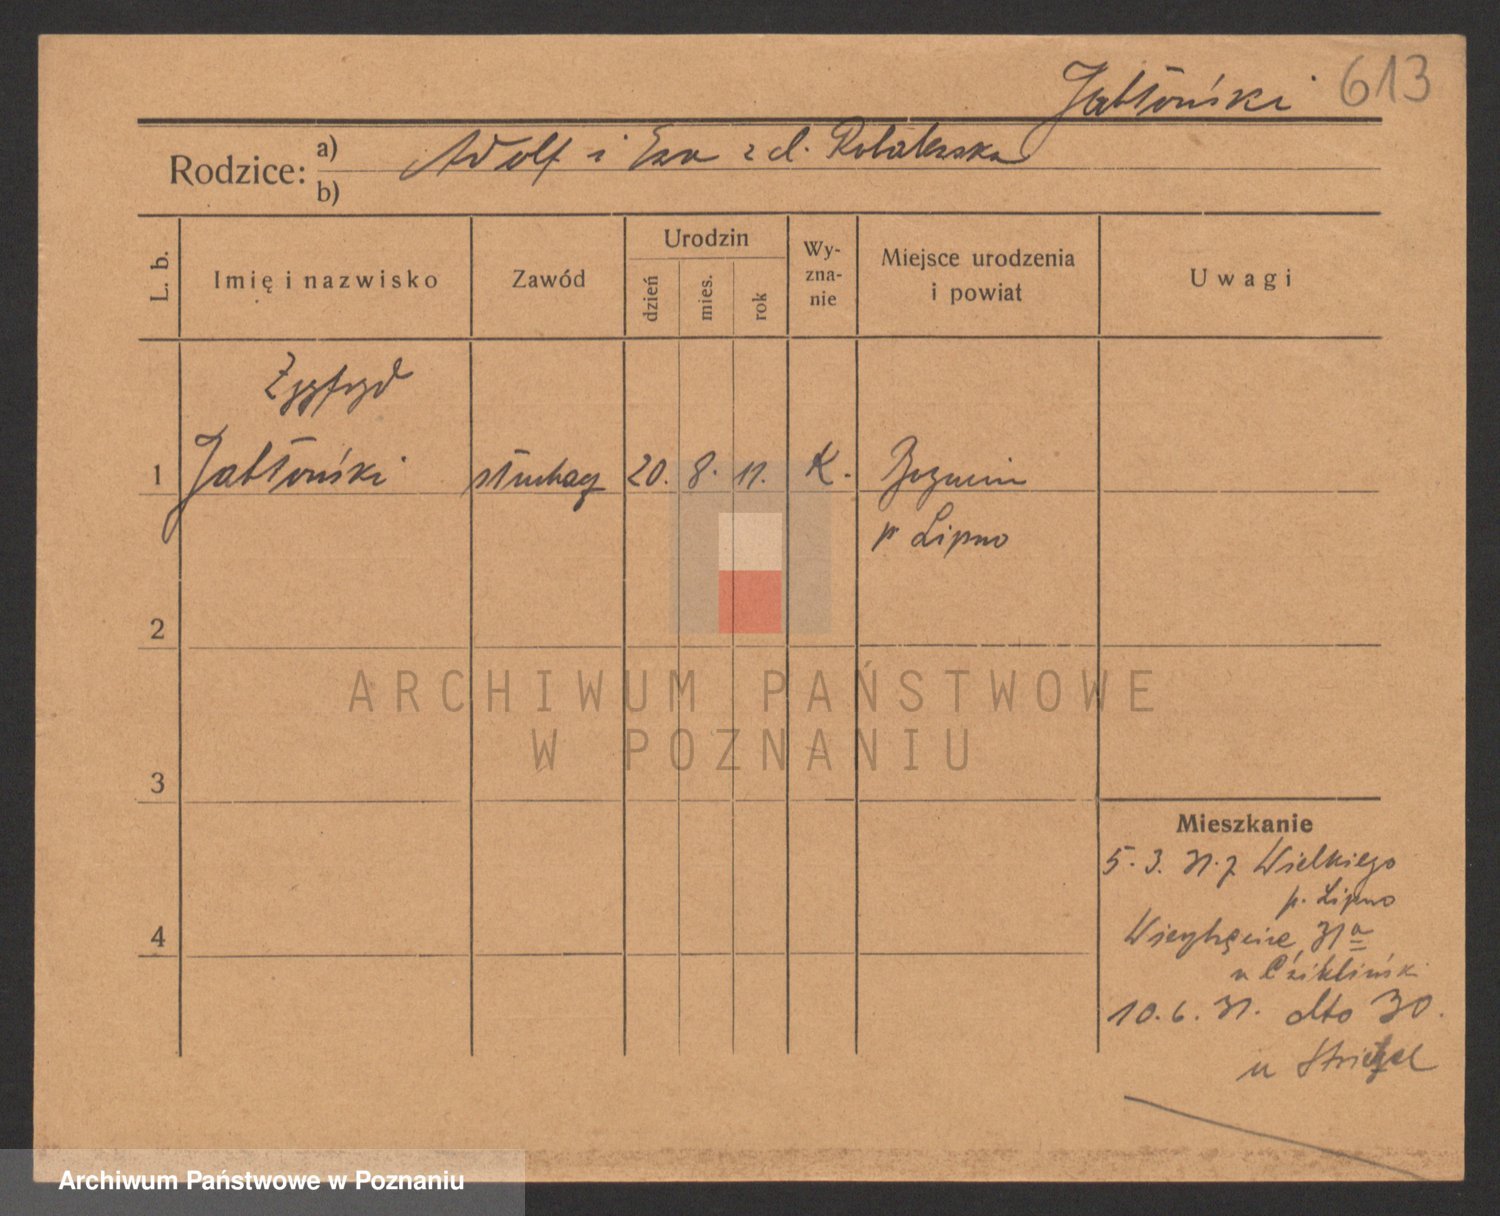 Jabłoński 613
Rodzice: a) Adolf i Ewa z d.
b)
L. b.
Imię i nazwisko
Zawód
Urodzin
dzień
mies.
rok
Wy-
zna-
nie
Miejsce urodzenia
i powiat
Uwagi
Zygfryd
1 Jabłoński słuchacz 20. 8. 11. K.
p Lipno
2
3
4
Mieszkanie
5.3.31. z Wielkiego
p. Lipno
31a
u
10.6.31. dto 30.
u
ARCHIWUM PAŃSTWOWE
W POZNANIU
Archiwum Państwowe w Poznaniu